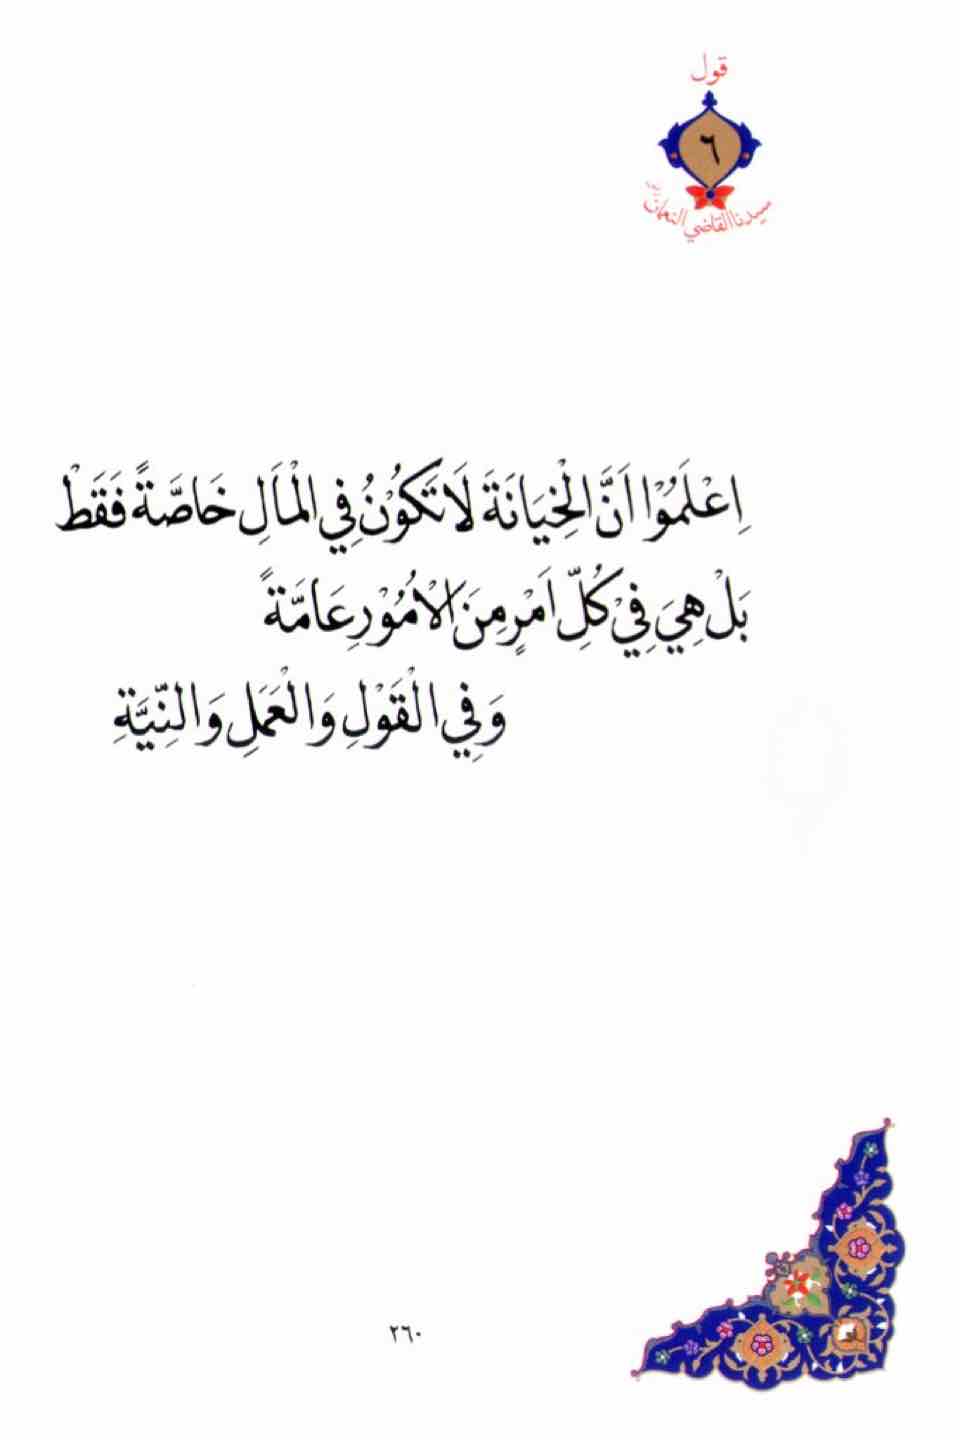 قول
٦
سيدنا القاضي النعمان
اِعْلَمُوْا اَنَّ الْخِيَانَةَ لَا تَكُوْنُ فِي الْمَالِ خَاصَّةً فَقَطْ
بَلْ هِيَ فِيْ كُلِّ اَمْرٍ مِنَ الْاُمُوْرِ عَامَّةً
وَفِي الْقَوْلِ وَالْعَمَلِ وَالنِّيَّةِ
٢٦٠